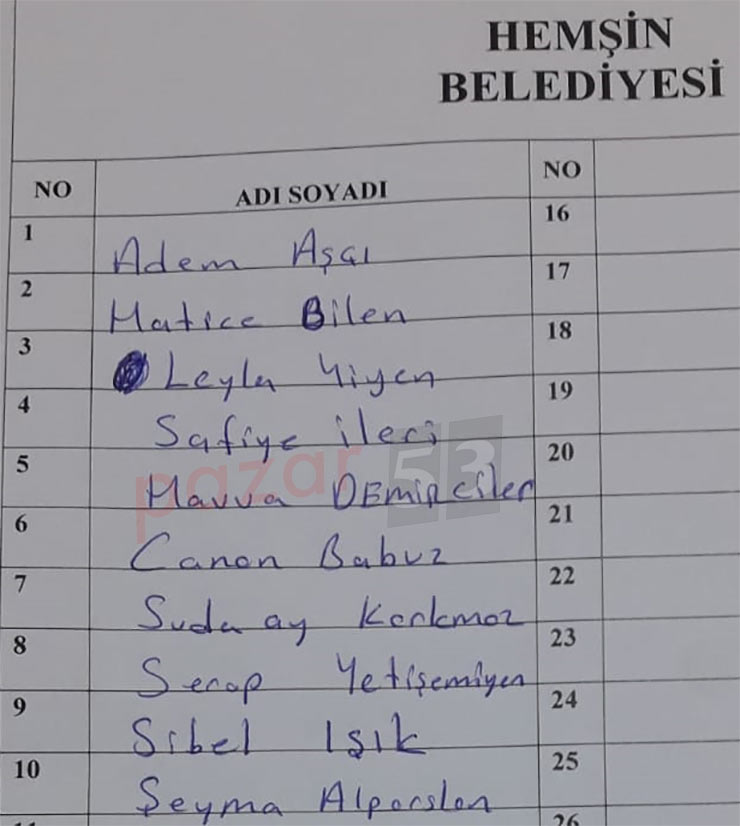 HEMŞİN
BELEDİYESİ
NO ADI SOYADI NO
1 Adem Aşçı 16
2 Hatice Bilen 17
3 Leyla Yiyen 18
4 Safiye ileri 19
5 Havva DEmirciler 20
6 Canan Babuz 21
7 Suda ay Korkmaz 22
8 Serap Yetişemiyen 23
9 Sibel Işık 24
10 Şeyma Alparslan 25
26
pazar53